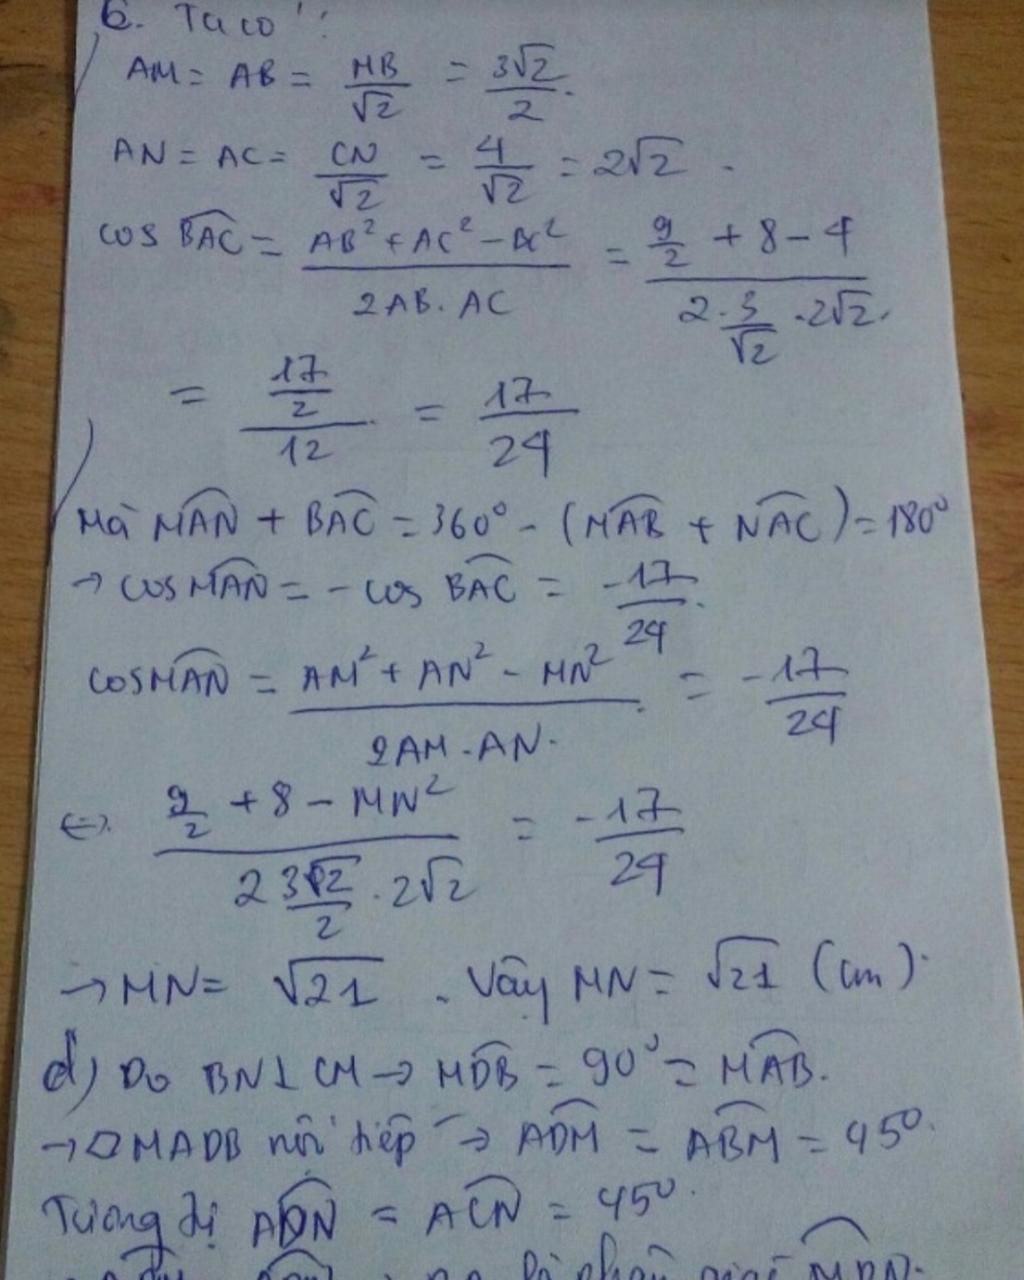 6. Ta có :
AM = AB = MB/√2 = 3√2/2.
AN = AC = CN/√2 = 4/√2 = 2√2.
cos BAC = (AB² + AC² - BC²)/(2AB.AC) = (9/2 + 8 - 4)/(2.3/√2.2√2.)
= (17/2)/12 = 17/24
Mà MAN + BAC = 360° - (MAB + NAC) = 180°
→ cos MAN = - cos BAC = -17/24.
cos MAN = (AM² + AN² - MN²)/(2AM.AN.) = -17/24
⇔ (9/2 + 8 - MN²)/(2 3√2/2 . 2√2) = -17/24
→ MN = √21. Vậy MN = √21 (cm).
d) Do BN⊥CM → MDB = 90° = MAB.
→ ▱MADB nội tiếp → ADM = ABM = 45°.
Tương tự ADN = ACN = 45°.
là phân giác MDN.